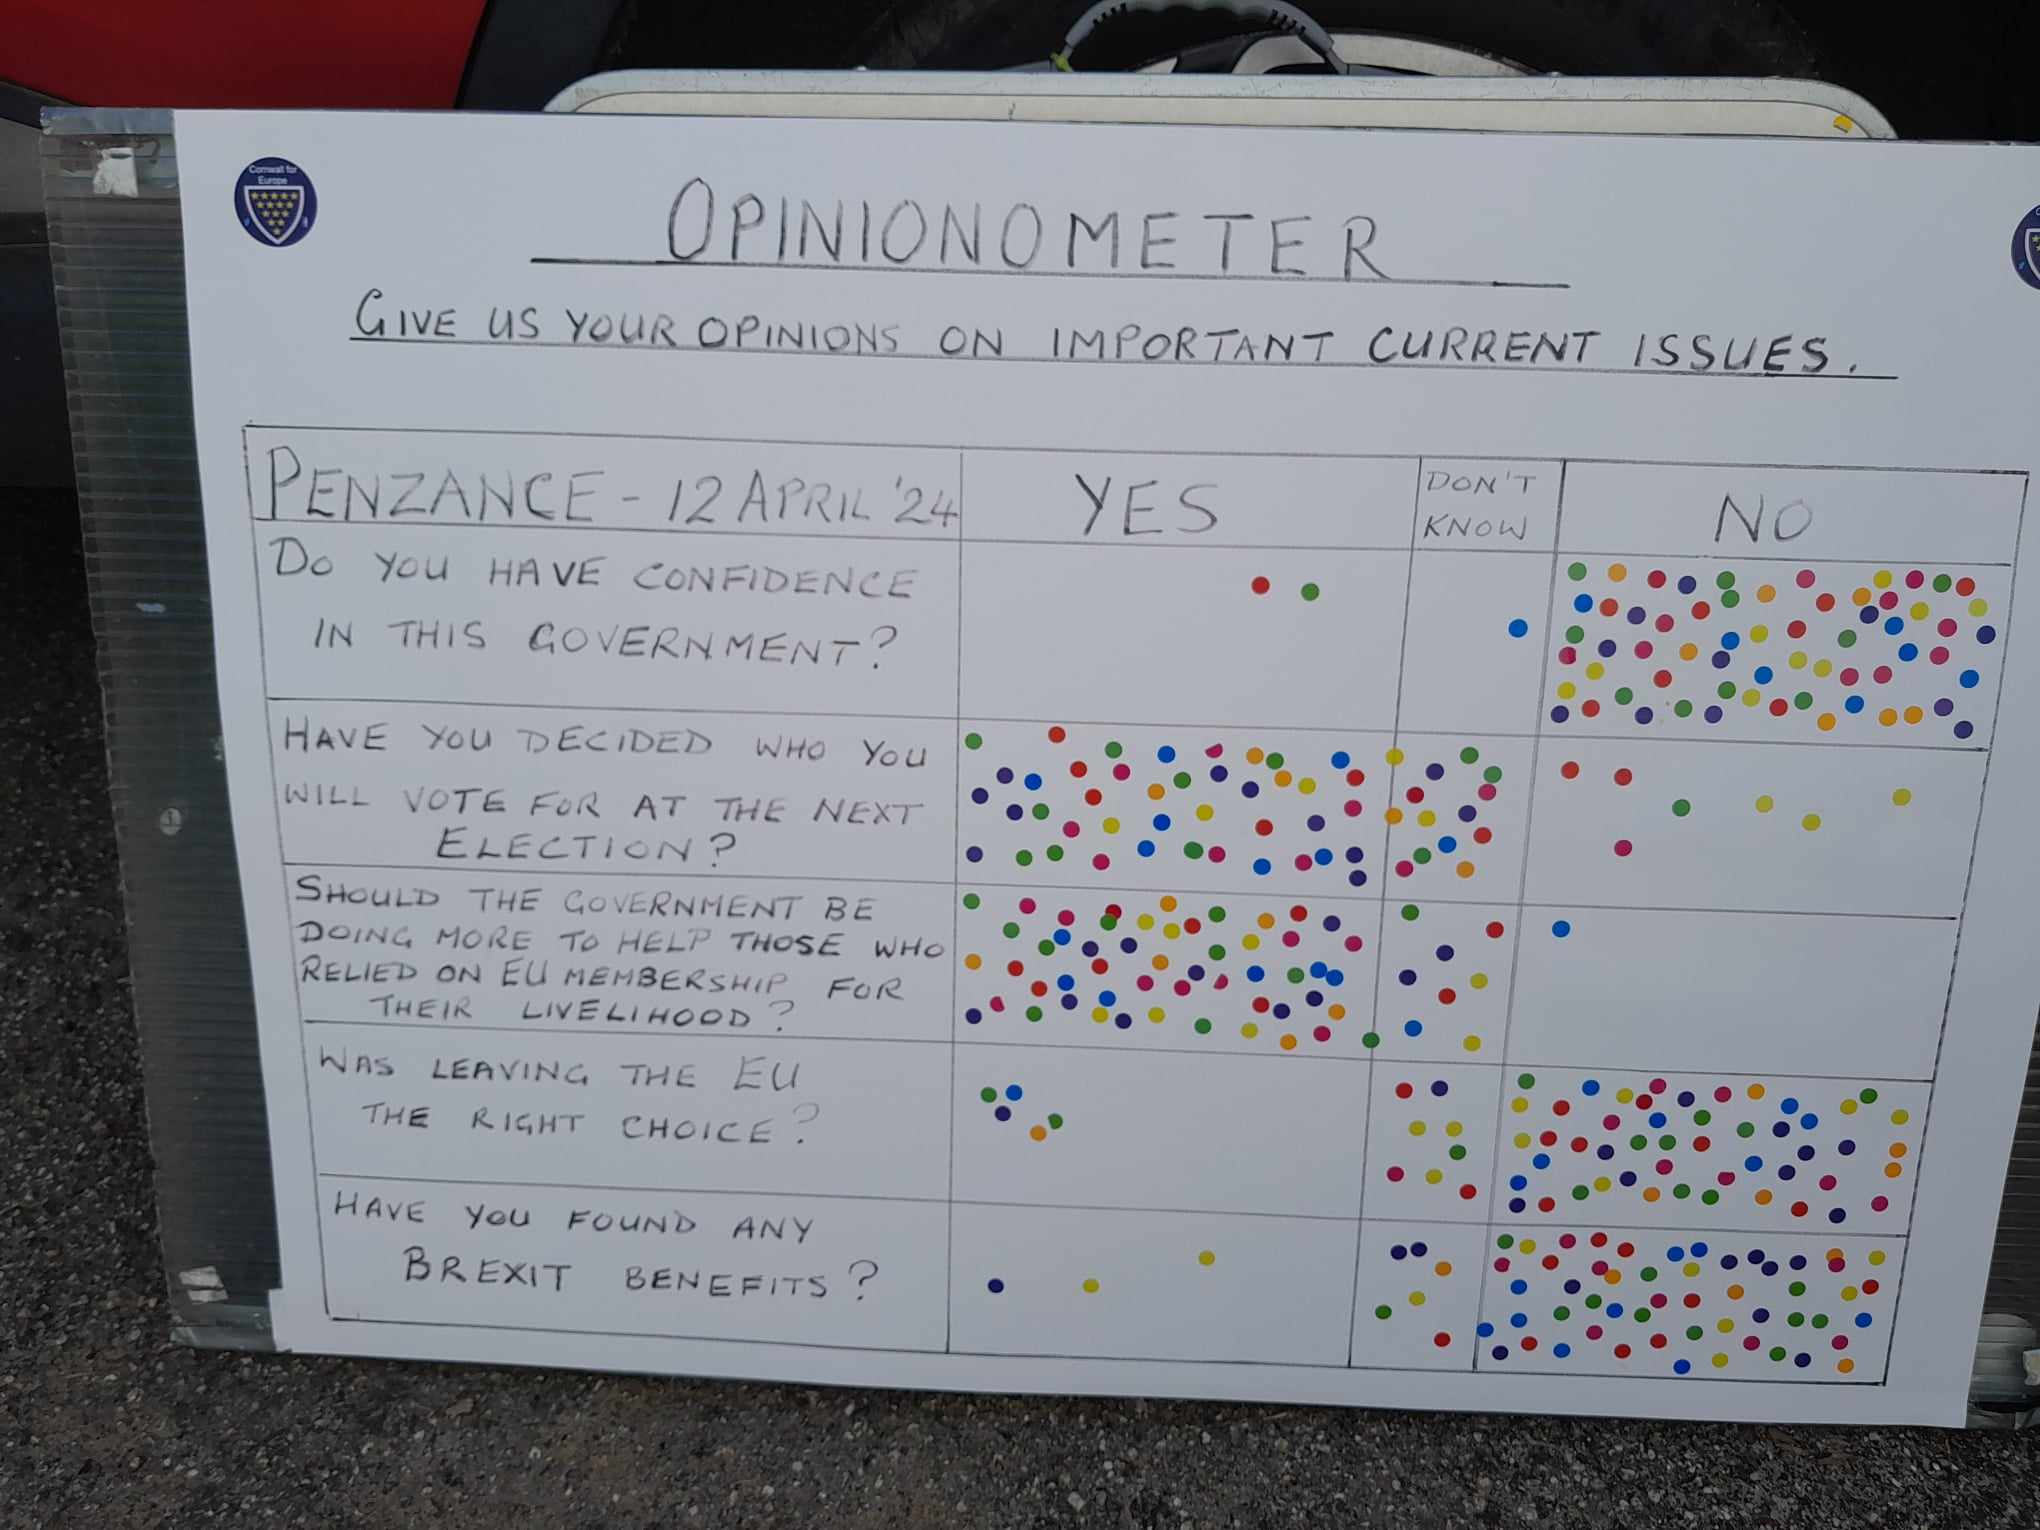 Cornwall for
Europe
OPINIONOMETER
GIVE US YOUR OPINIONS ON IMPORTANT CURRENT ISSUES.
PENZANCE - 12 APRIL '24
YES
DON'T
KNOW
NO
DO YOU HAVE CONFIDENCE
IN THIS GOVERNMENT?
HAVE YOU DECIDED WHO YOU
WILL VOTE FOR AT THE NEXT
ELECTION?
SHOULD THE GOVERNMENT BE
DOING MORE TO HELP THOSE WHO
RELIED ON EU MEMBERSHIP FOR
THEIR LIVELIHOOD?
WAS LEAVING THE EU
THE RIGHT CHOICE?
HAVE YOU FOUND ANY
BREXIT BENEFITS?